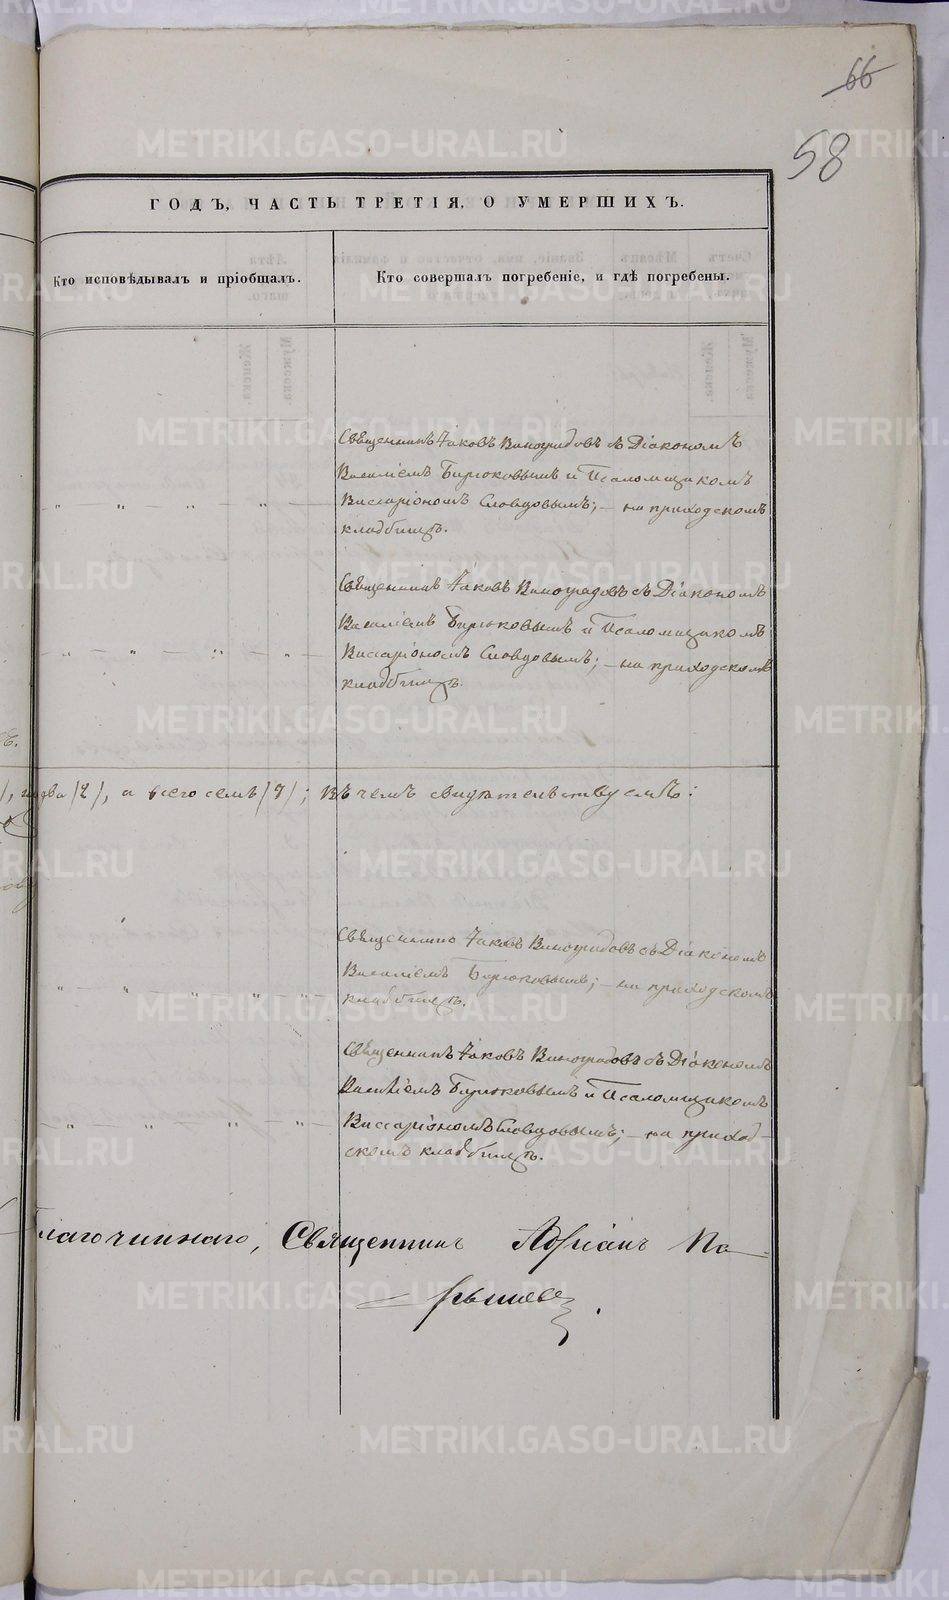 66
58
ГОДЪ, ЧАСТЬ ТРЕТІЯ, О УМЕРШИХЪ.
Кто исповѣдывалъ и пріобщалъ.
Кто совершалъ погребеніе, и гдѣ погребены.
Священникъ Іаковъ Виноградовъ съ Діакономъ
Василіемъ Бирюковымъ и Псаломщикомъ
Виссаріономъ Словцовымъ; – на приходскомъ
кладбищѣ.
Священникъ Іаковъ Виноградовъ съ Діакономъ
Василіемъ Бирюковымъ и Псаломщикомъ
Виссаріономъ Словцовымъ; – на приходскомъ
кладбищѣ.
два /2/, а всего семь /7/; въ чемъ свидѣтельствуемъ:
Священникъ Іаковъ Виноградовъ съ Діакономъ
Василіемъ Бирюковымъ; – на приходскомъ
кладбищѣ.
Священникъ Іаковъ Виноградовъ съ Діакономъ
Василіемъ Бирюковымъ и Псаломщикомъ
Виссаріономъ Словцовымъ; – на приход-
скомъ кладбищѣ.
лагочиннаго, Священникъ Адріанъ
METRIKI.GASO-URAL.RU